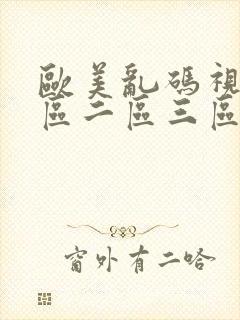 歐美亂碼視
區二區三區
窗外有二哈